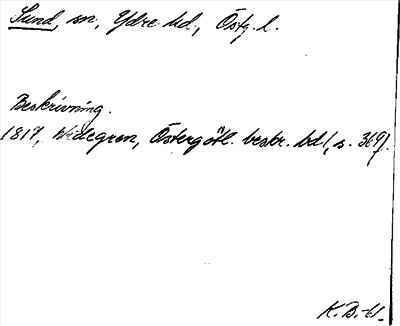 Sund, sn, Ydre hd., Östg. l.
Beskrivning.
1817, Widegren, Östergötl. beskr. bd 1, s. 369).
K.B.-